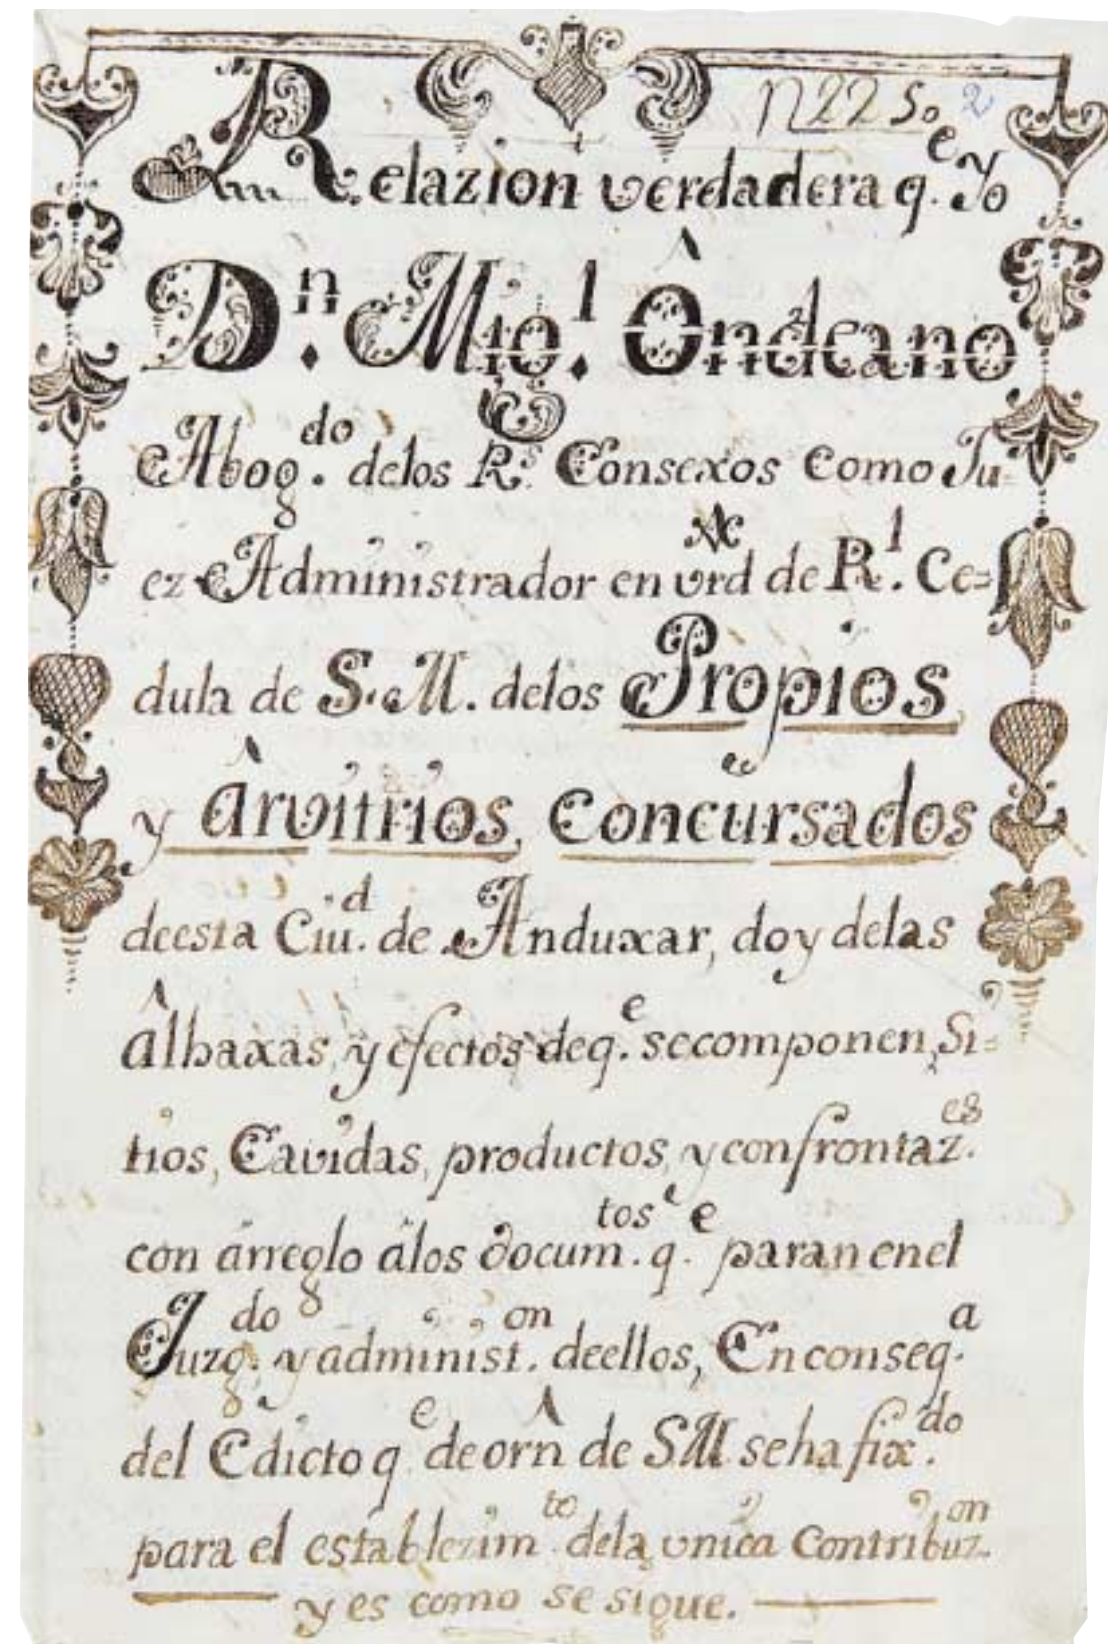 N 22 50 2
Relazion verdadera q.e yo
Dn. Mig.l Ôndeano
Abog.do delos R.s Consexos como Ju-
ez Administrador en vrd de R.l Ce=
dula de S. M. delos Propios
y ârvitrios, Concursados
deesta Ciu.d de Anduxar, doy delas
âlhaxas, y efectos deq.e secomponen, Si=
tios, Cavidas, productos, y confrontaz.es
con ârreglo âlos docum.tos q.e paran enel
Juzg.do y administ.on deellos, En conseq.a
del Edicto q.e de orn de S.M. seha fix.do
para el establezim.to dela vnica Contribuz.on
y es como se sigue.